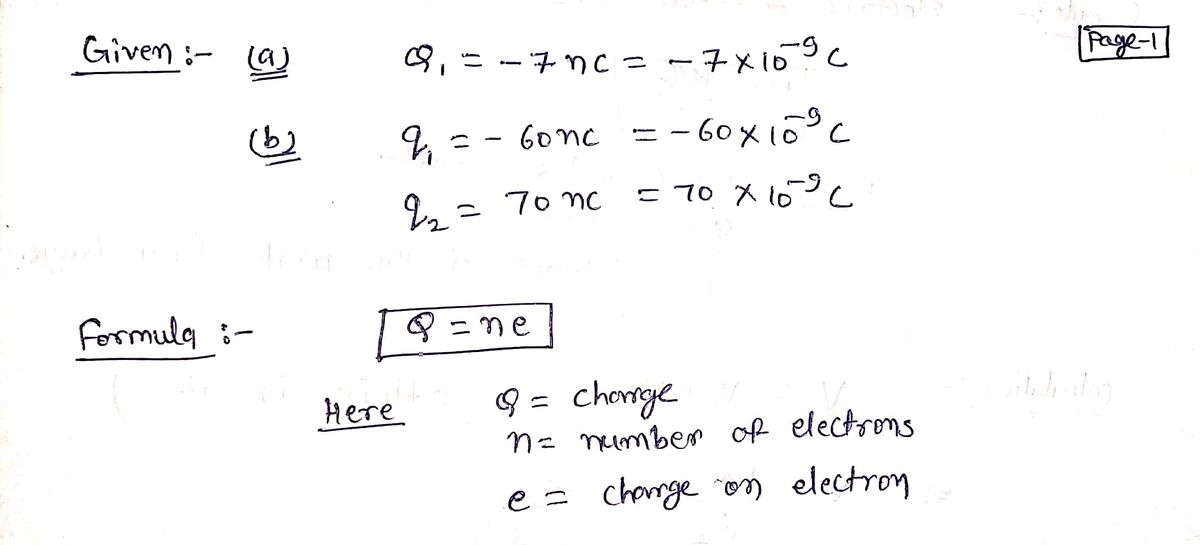 Page-1
Given :- (a) Q₁ = - 7 nC = - 7 × 10⁻⁹ C
(b) q₁ = - 60 nC = - 60 × 10⁻⁹ C
q₂ = 70 nC = 70 × 10⁻⁹ C
Formula :- Q = ne
Here Q = charge
n = number of electrons
e = charge on electron